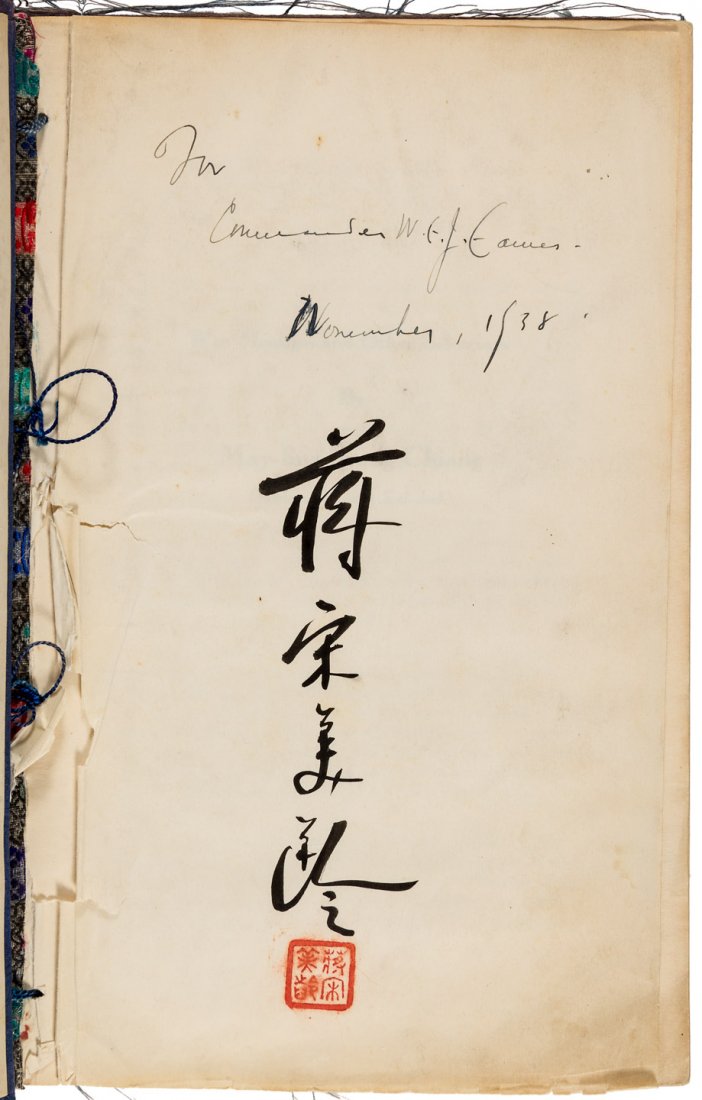 For
Commander W. E. J. Eames.
November, 1938.
蔣宋美齡
蔣宋美齡